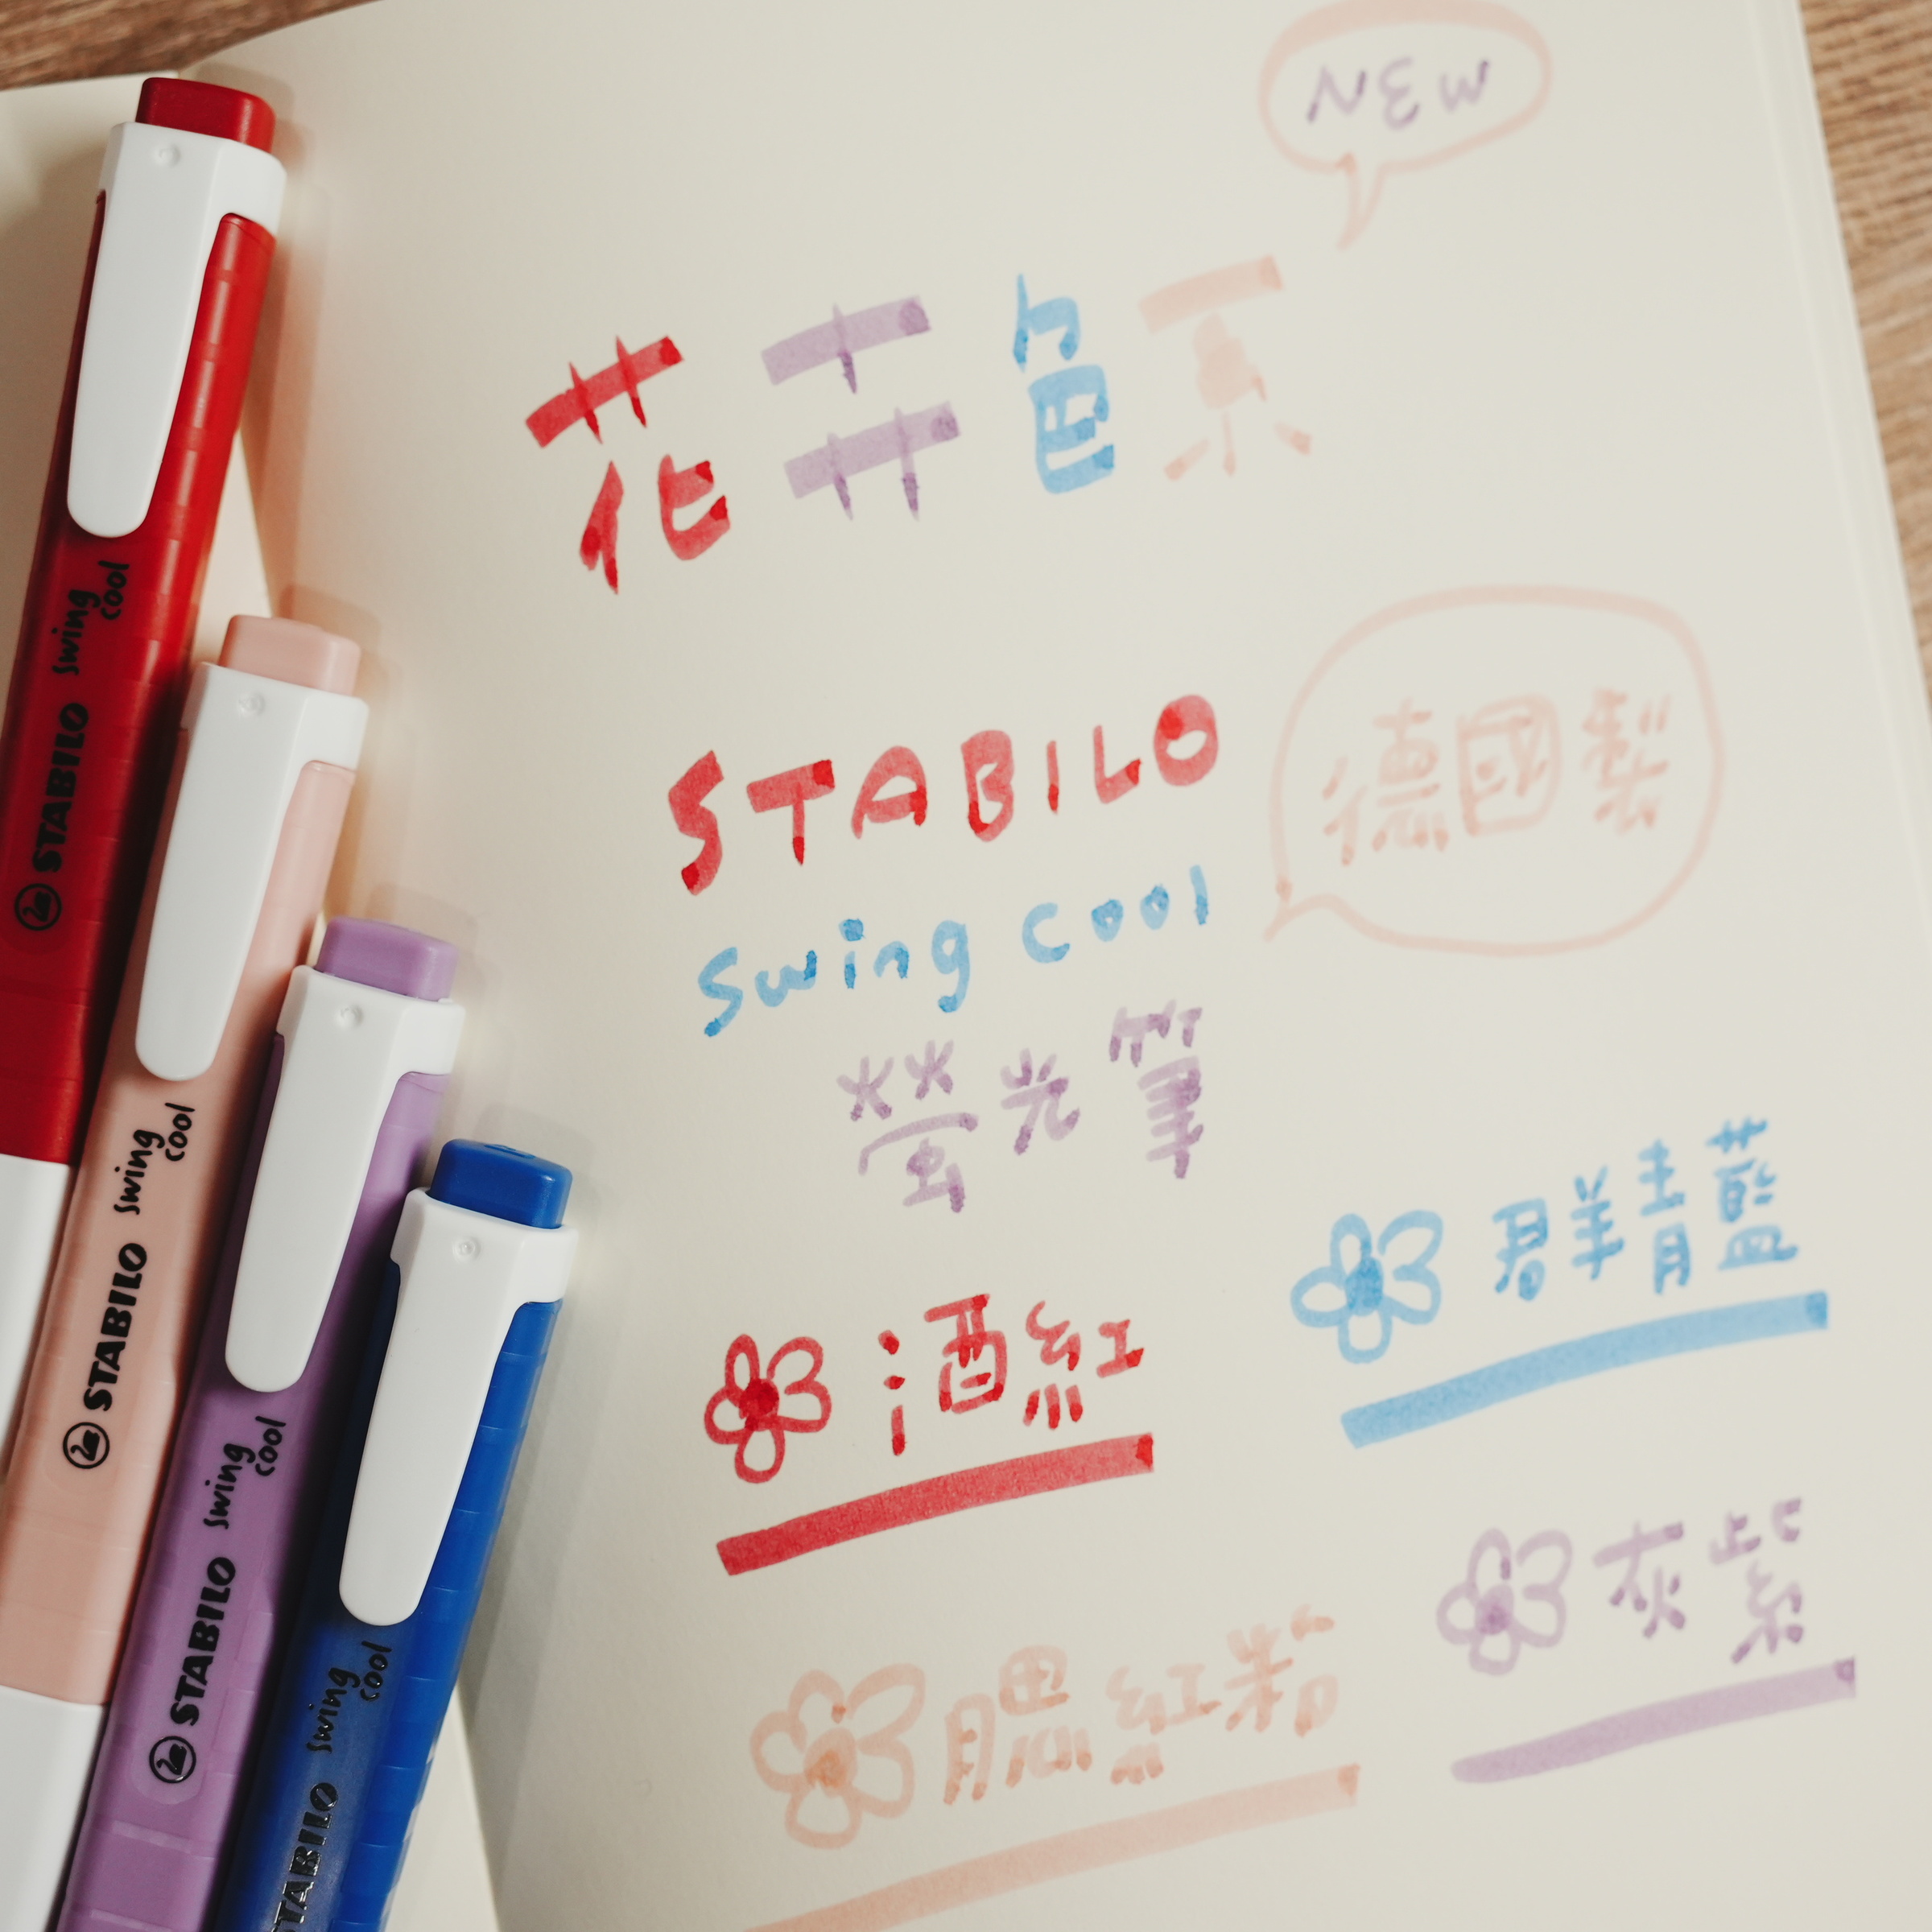 NEW
花卉色系
STABILO
德國製
swing cool
螢光筆
群青藍
酒紅
灰紫
腮紅粉
STABILO swing cool
STABILO swing cool
STABILO swing cool
STABILO swing cool